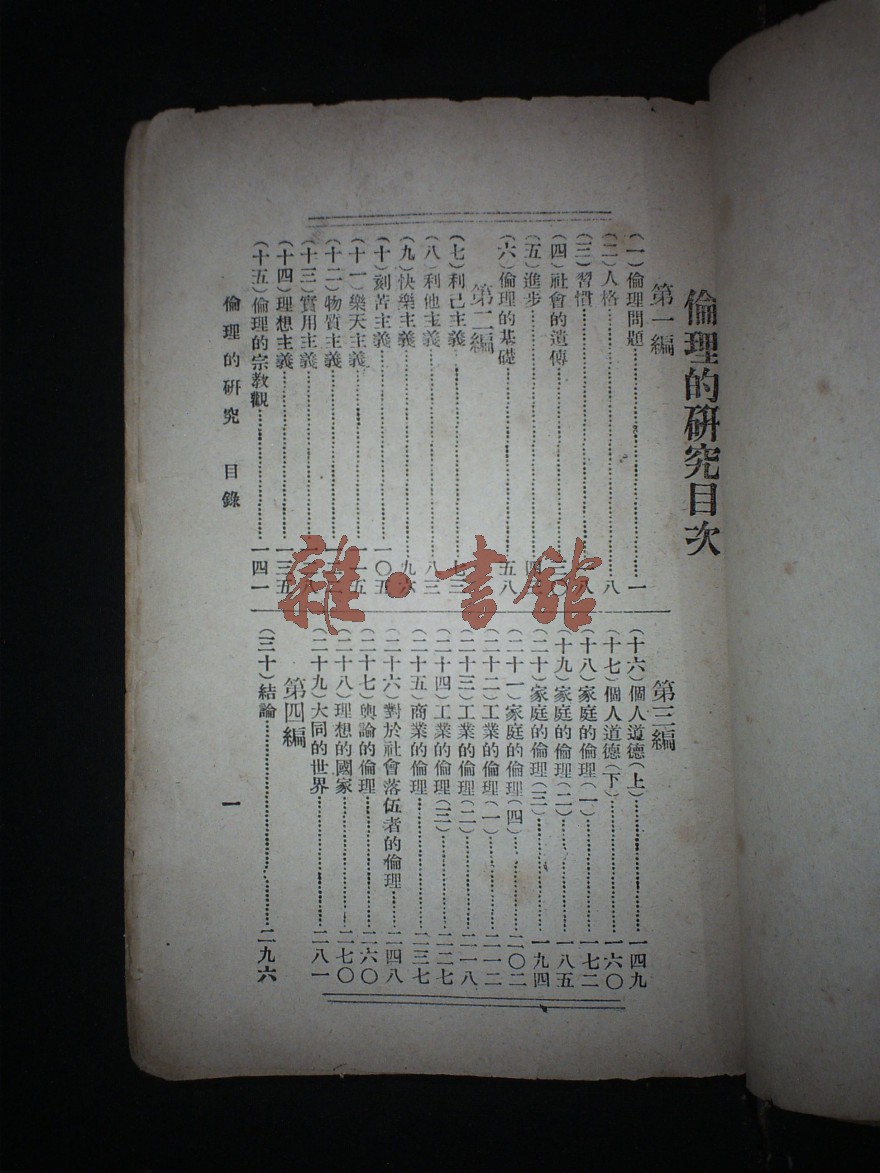 倫理的研究目次
第一編
(一)倫理問題…………一
(二)人格…………八
(三)習慣…………八
(四)社會的遺傳…………
(五)進步…………四
(六)倫理的基礎…………五八
第二編
(七)利己主義…………七三
(八)利他主義…………八三
(九)快樂主義…………九六
(十)刻苦主義…………一〇五
(十一)樂天主義…………一一五
(十二)物質主義…………
(十三)實用主義…………
(十四)理想主義…………一三五
(十五)倫理的宗教觀…………一四一
第三編
(十六)個人道德(上)…………一四九
(十七)個人道德(下)…………一六〇
(十八)家庭的倫理(一)…………一七二
(十九)家庭的倫理(二)…………一八五
(二十)家庭的倫理(三)…………一九四
(二十一)家庭的倫理(四)…………二〇二
(二十二)工業的倫理(一)…………二一二
(二十三)工業的倫理(二)…………二一八
(二十四)工業的倫理(三)…………二二七
(二十五)商業的倫理…………二三七
(二十六)對於社會落伍者的倫理…………二四八
(二十七)輿論的倫理…………二六〇
(二十八)理想的國家…………二七〇
(二十九)大同的世界…………二八一
第四編
(三十)結論…………二九六
倫理的研究 目錄
一
雜·書館